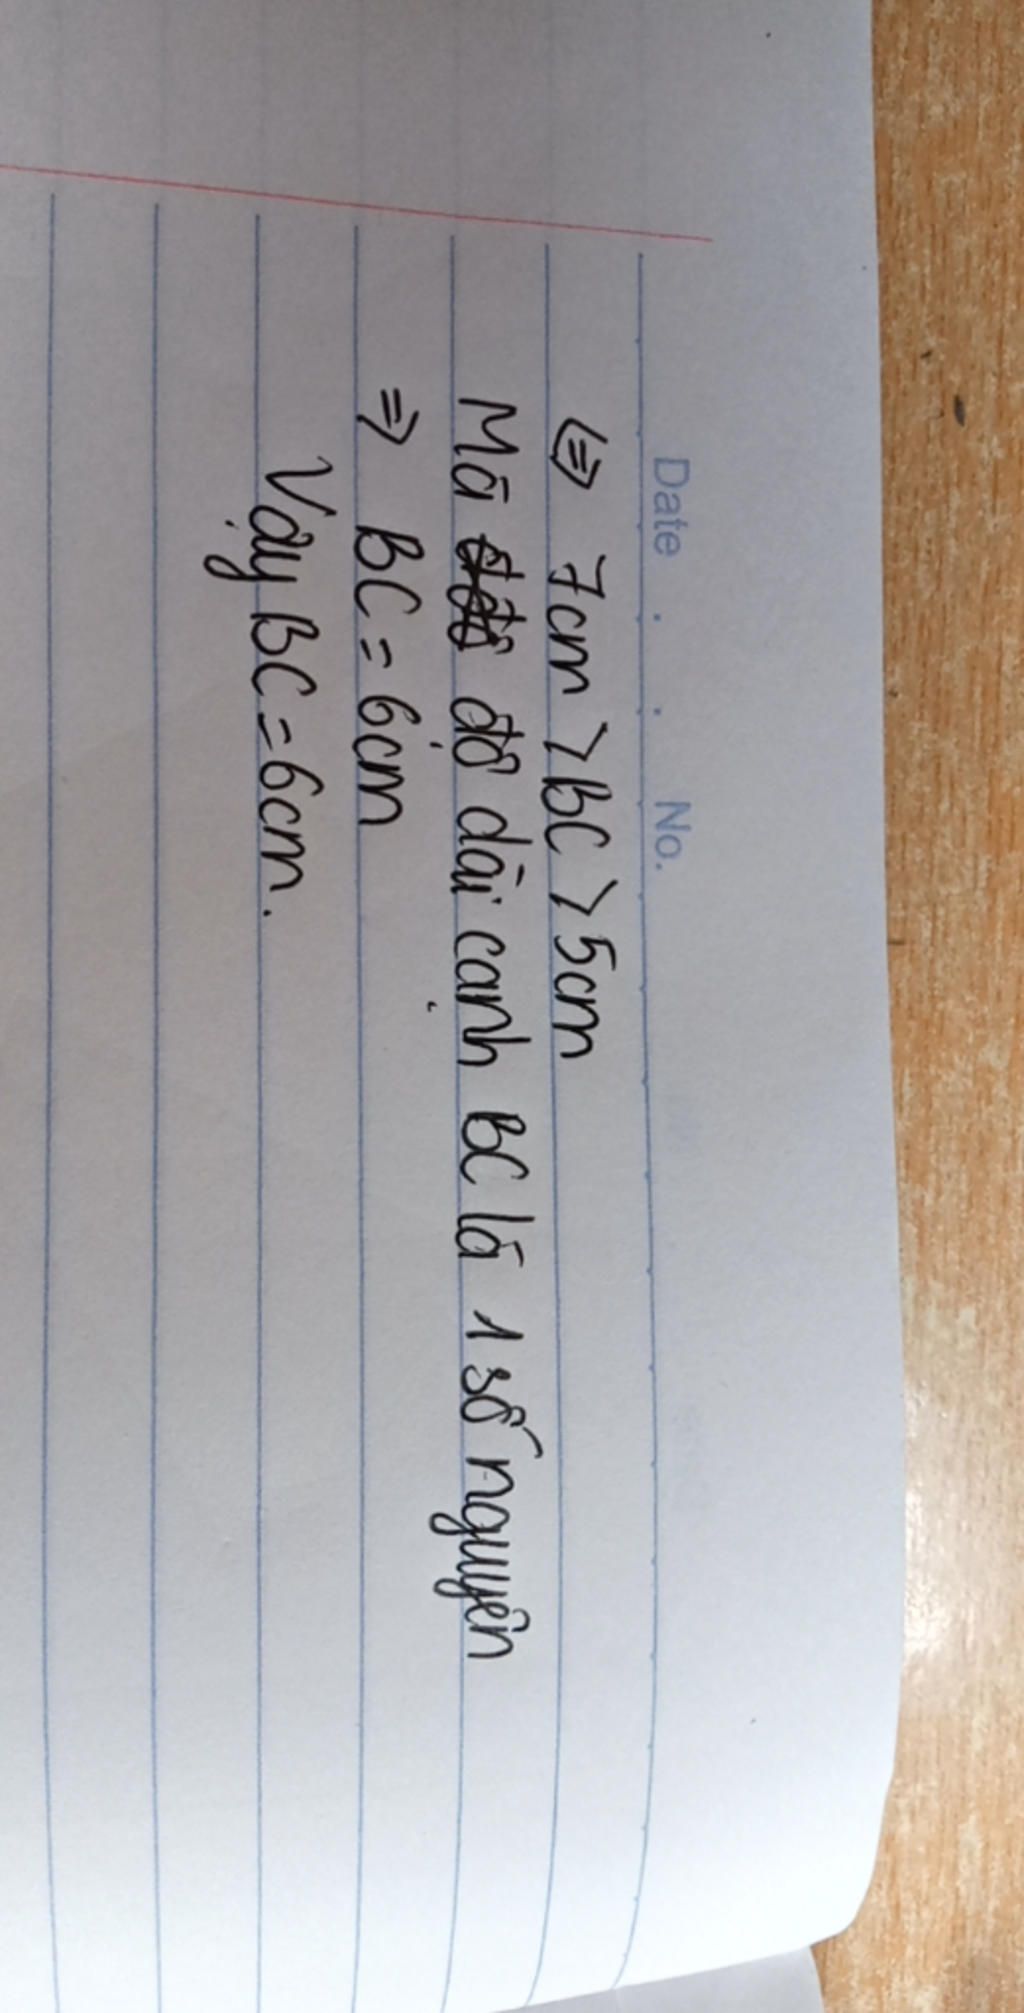 Date . . . No.
⇔ 7cm > BC > 5cm
Mà độ dài cạnh BC là 1 số nguyên
⇒ BC = 6cm
Vậy BC = 6cm.